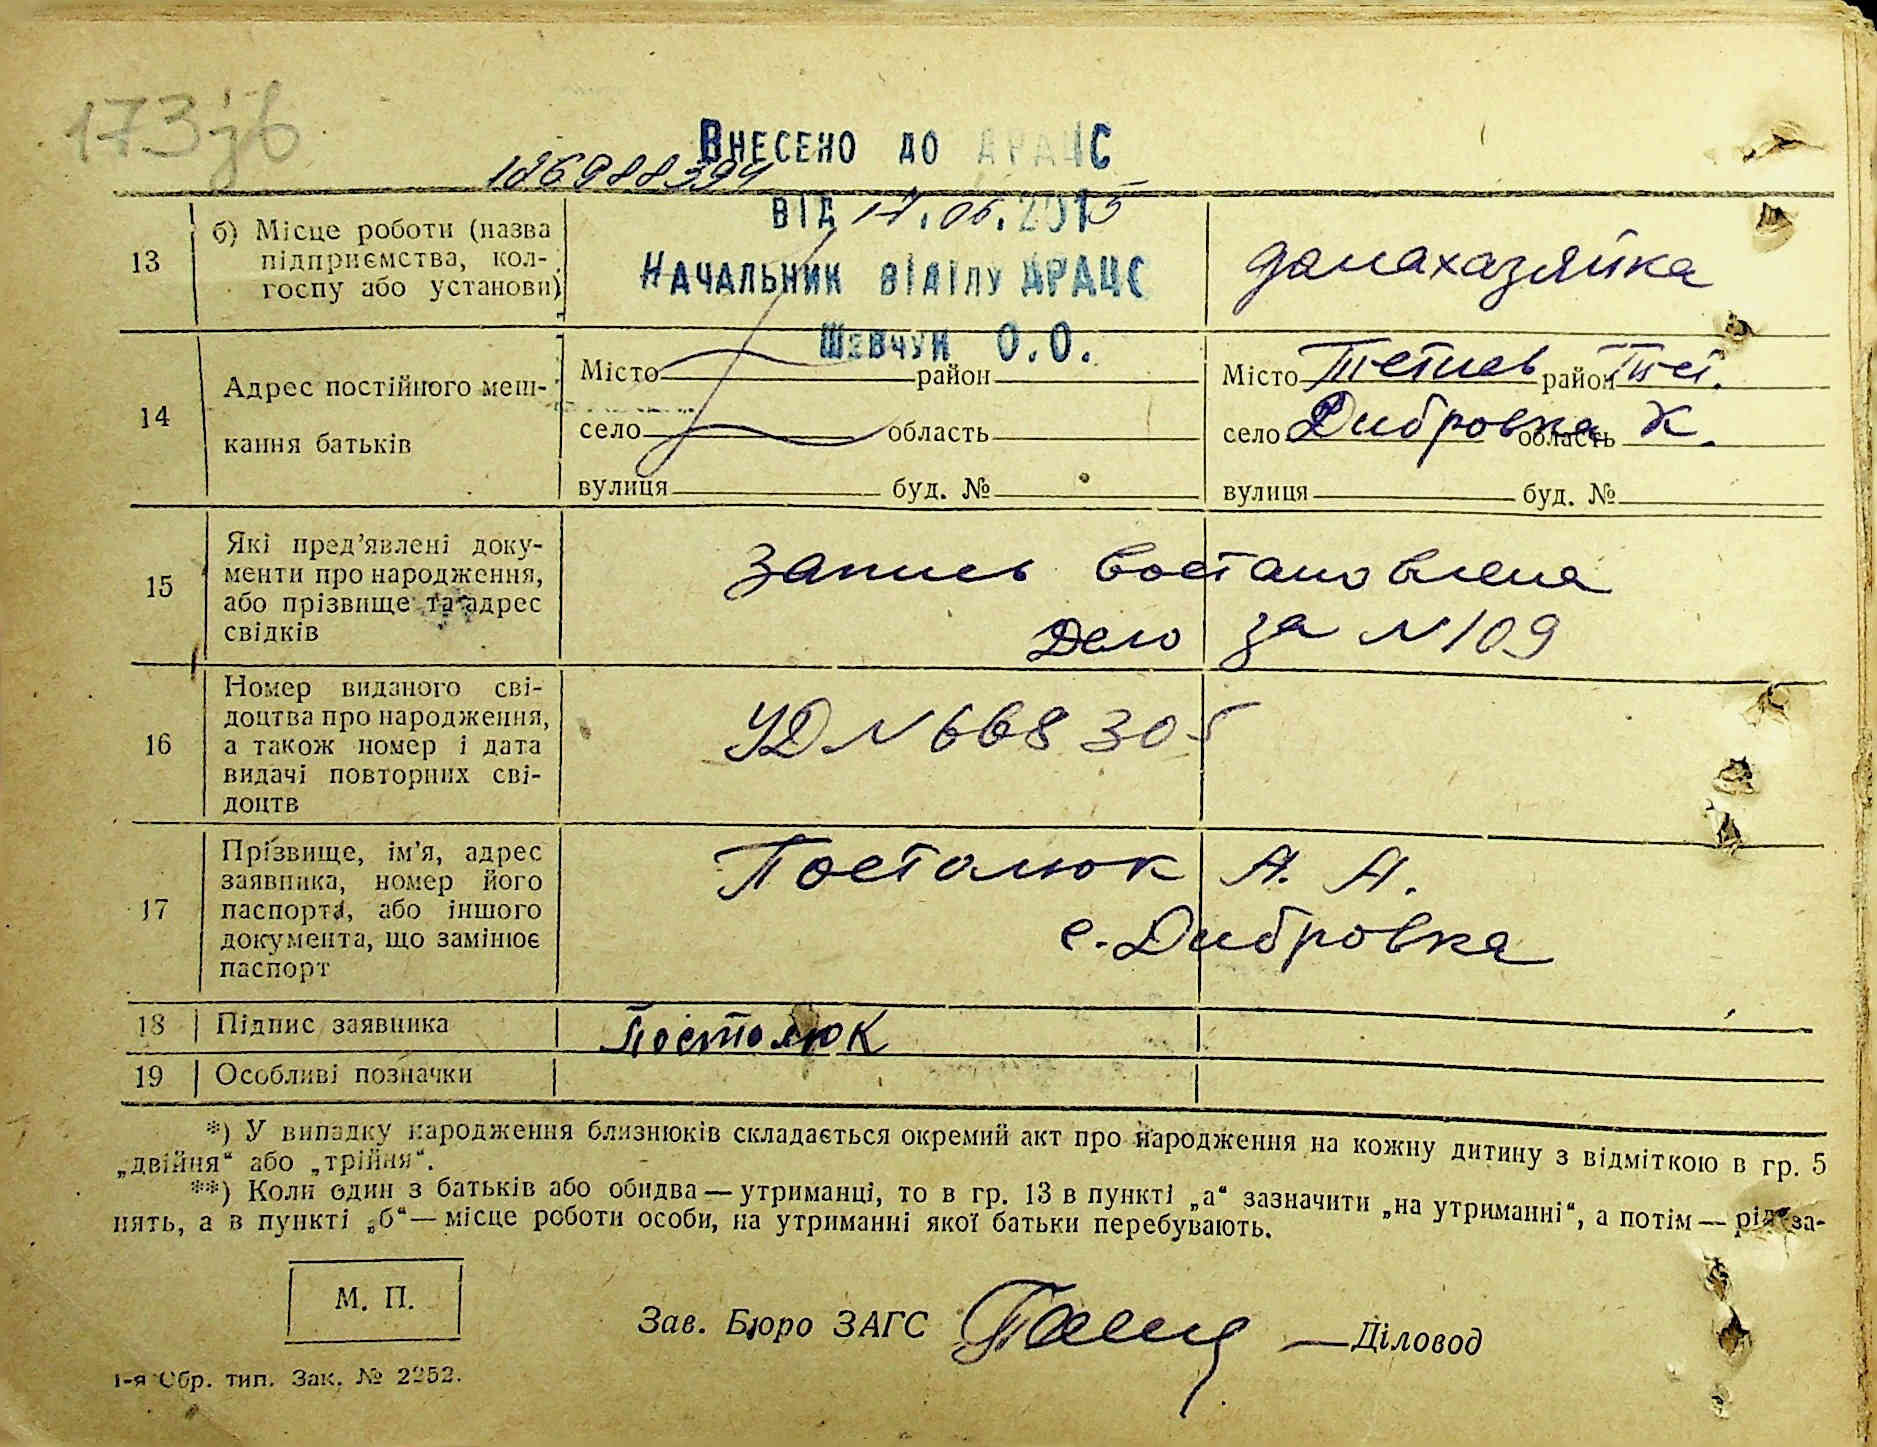 173зв
Внесено до ДРАЦС
186988394
від 17.06.2015
Начальник відділу ДРАЦС
Шевчук О.О.
13
б) Місце роботи (назва
підприємства, кол-
госпу або установи)
домахазяйка
14
Адрес постійного меш-
кання батьків
Місто район
село область
вулиця буд. №
Місто Тетиев район Тет.
село Дибровка область К.
вулиця буд. №
15
Які пред’явлені доку-
менти про народження,
або прізвище та адрес
свідків
запись востановлена
Дело за N 109
16
Номер виданого сві-
доцтва про народження,
а також номер і дата
видачі повторних сві-
доцтв
УД N 668305
17
Прізвище, ім’я, адрес
заявника, номер його
паспорта, або іншого
документа, що замінює
паспорт
Постолюк А. А.
с. Дибровка
18 Підпис заявника Постолюк
19 Особливі позначки
*) У випадку народження близнюків складається окремий акт про народження на кожну дитину з відміткою в гр. 5
„двійня“ або „трійня“.
**) Коли один з батьків або обидва — утриманці, то в гр. 13 в пункті „а“ зазначити „на утриманні“, а потім — рід за-
нять, а в пункті „б“ — місце роботи особи, на утриманні якої батьки перебувають.
М. П.
Зав. Бюро ЗАГС Діловод
1-я Обр. тип. Зак. № 2252.